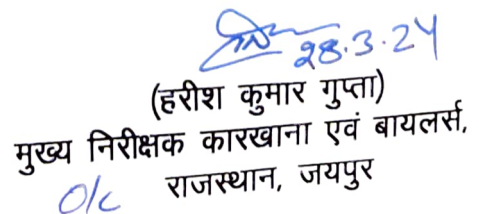 28.3.24
(हरीश कुमार गुप्ता)
मुख्य निरीक्षक कारखाना एवं बायलर्स,
O/c राजस्थान, जयपुर